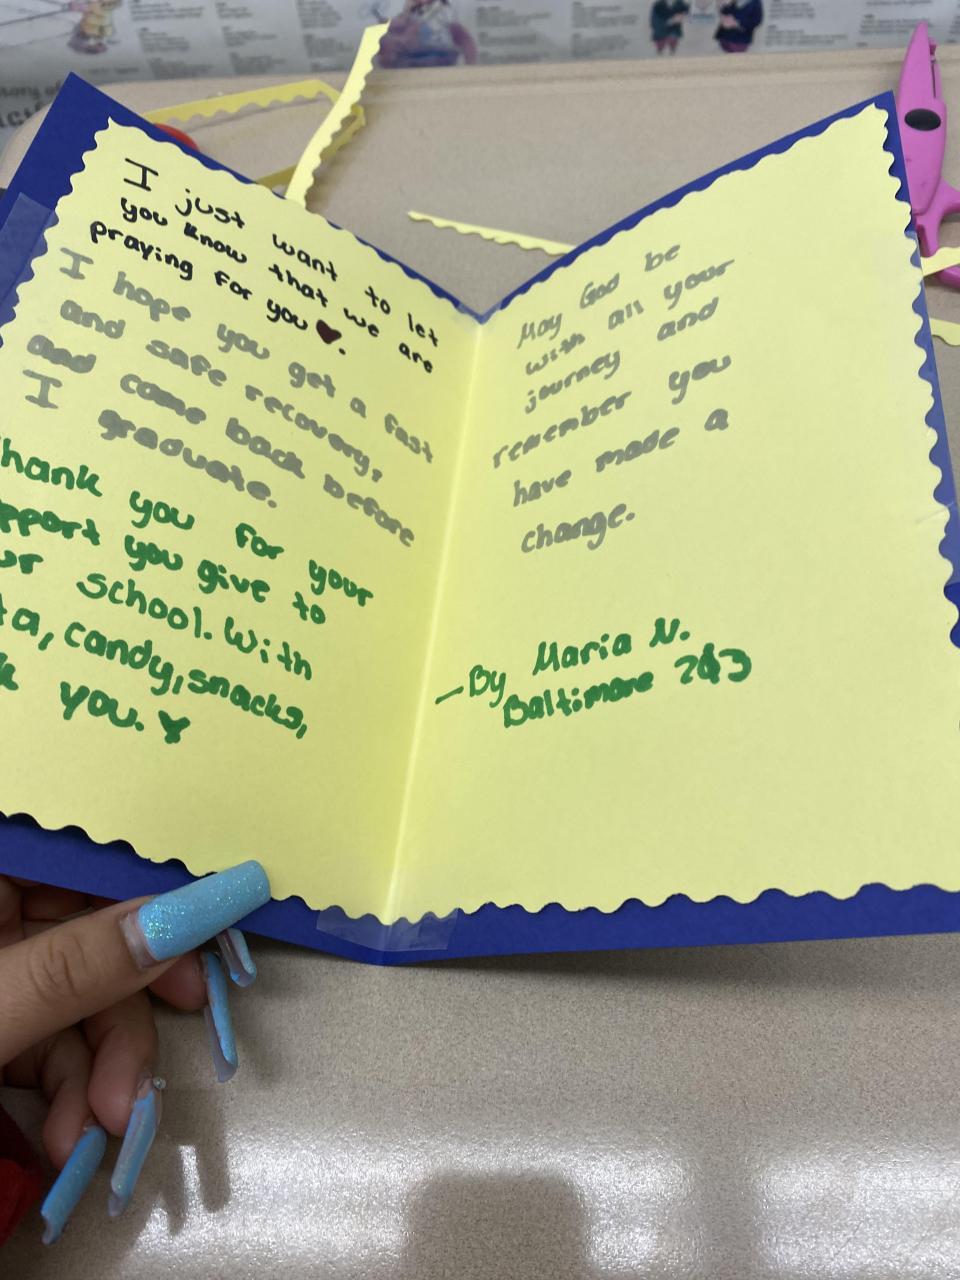 I just want to let
you know that we are
praying for you ♥.
I hope you get a fast
and safe recovery,
and come back before
I graduate.
hank you for your
pport you give to
ur school. With
ta, candy, snacks,
k you.
May God be
with all your
journey and
remember you
have made a
change.
—By Maria N.
Baltimore